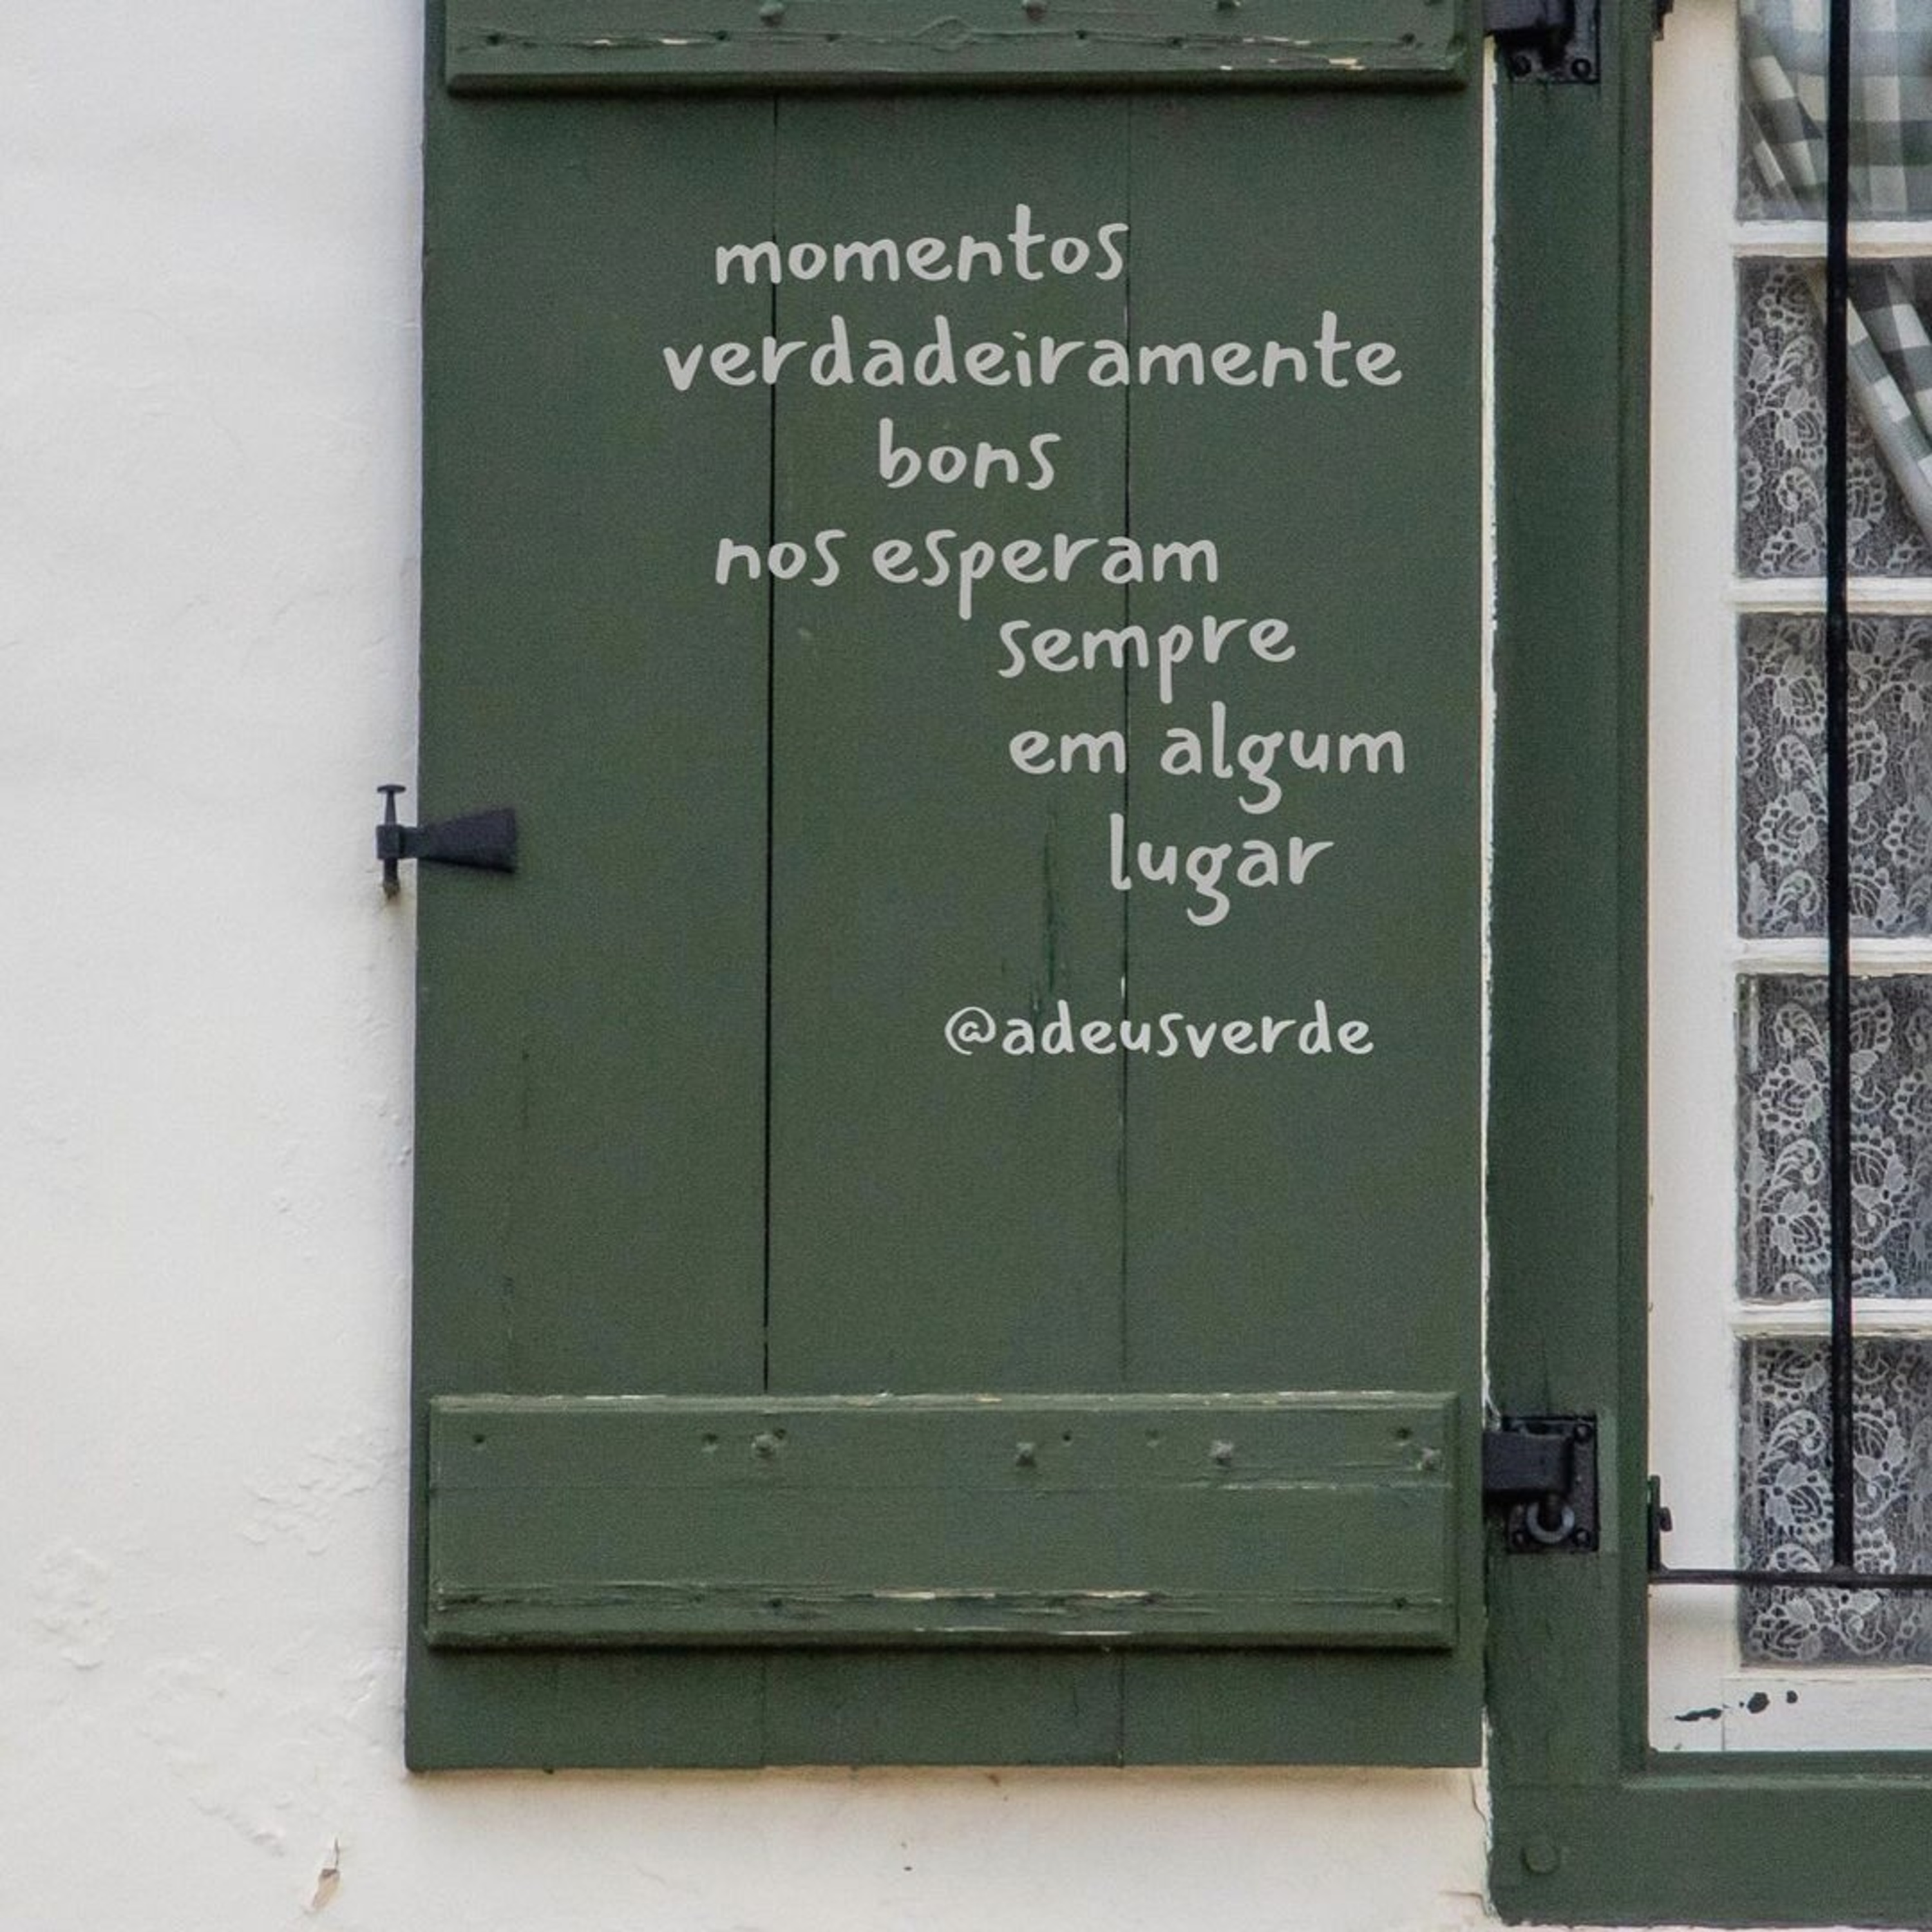 momentos
verdadeiramente
bons
nos esperam
sempre
em algum
lugar
@adeusverde